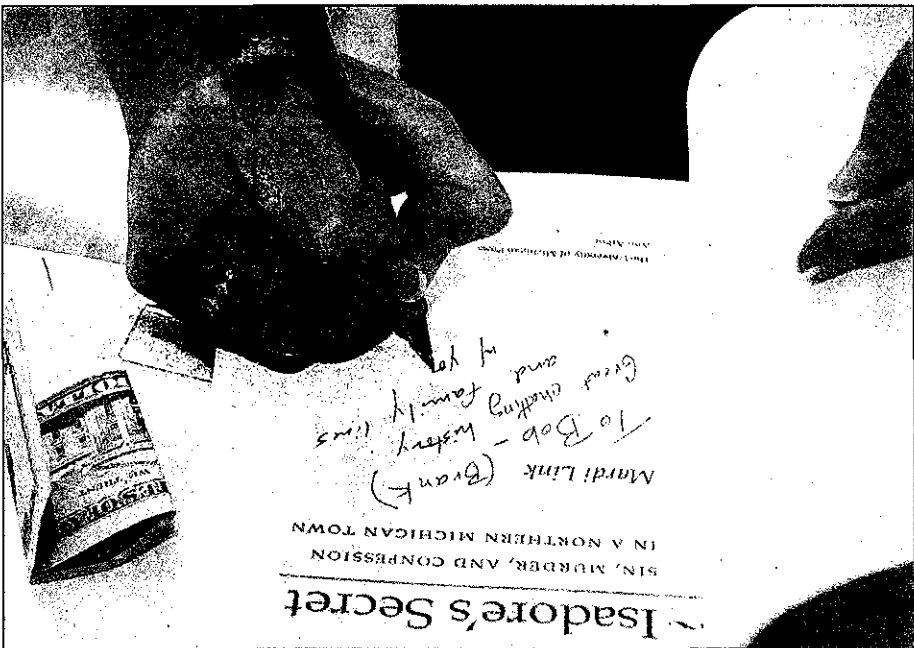 Isadore's Secret
SIN, MURDER, AND CONFESSION
IN A NORTHERN MICHIGAN TOWN
Mardi Link (Brank)
To Bob –
Great chatting history
and family lines
w/ yo
The University of Michigan Press
Ann Arbor
WE TRUST